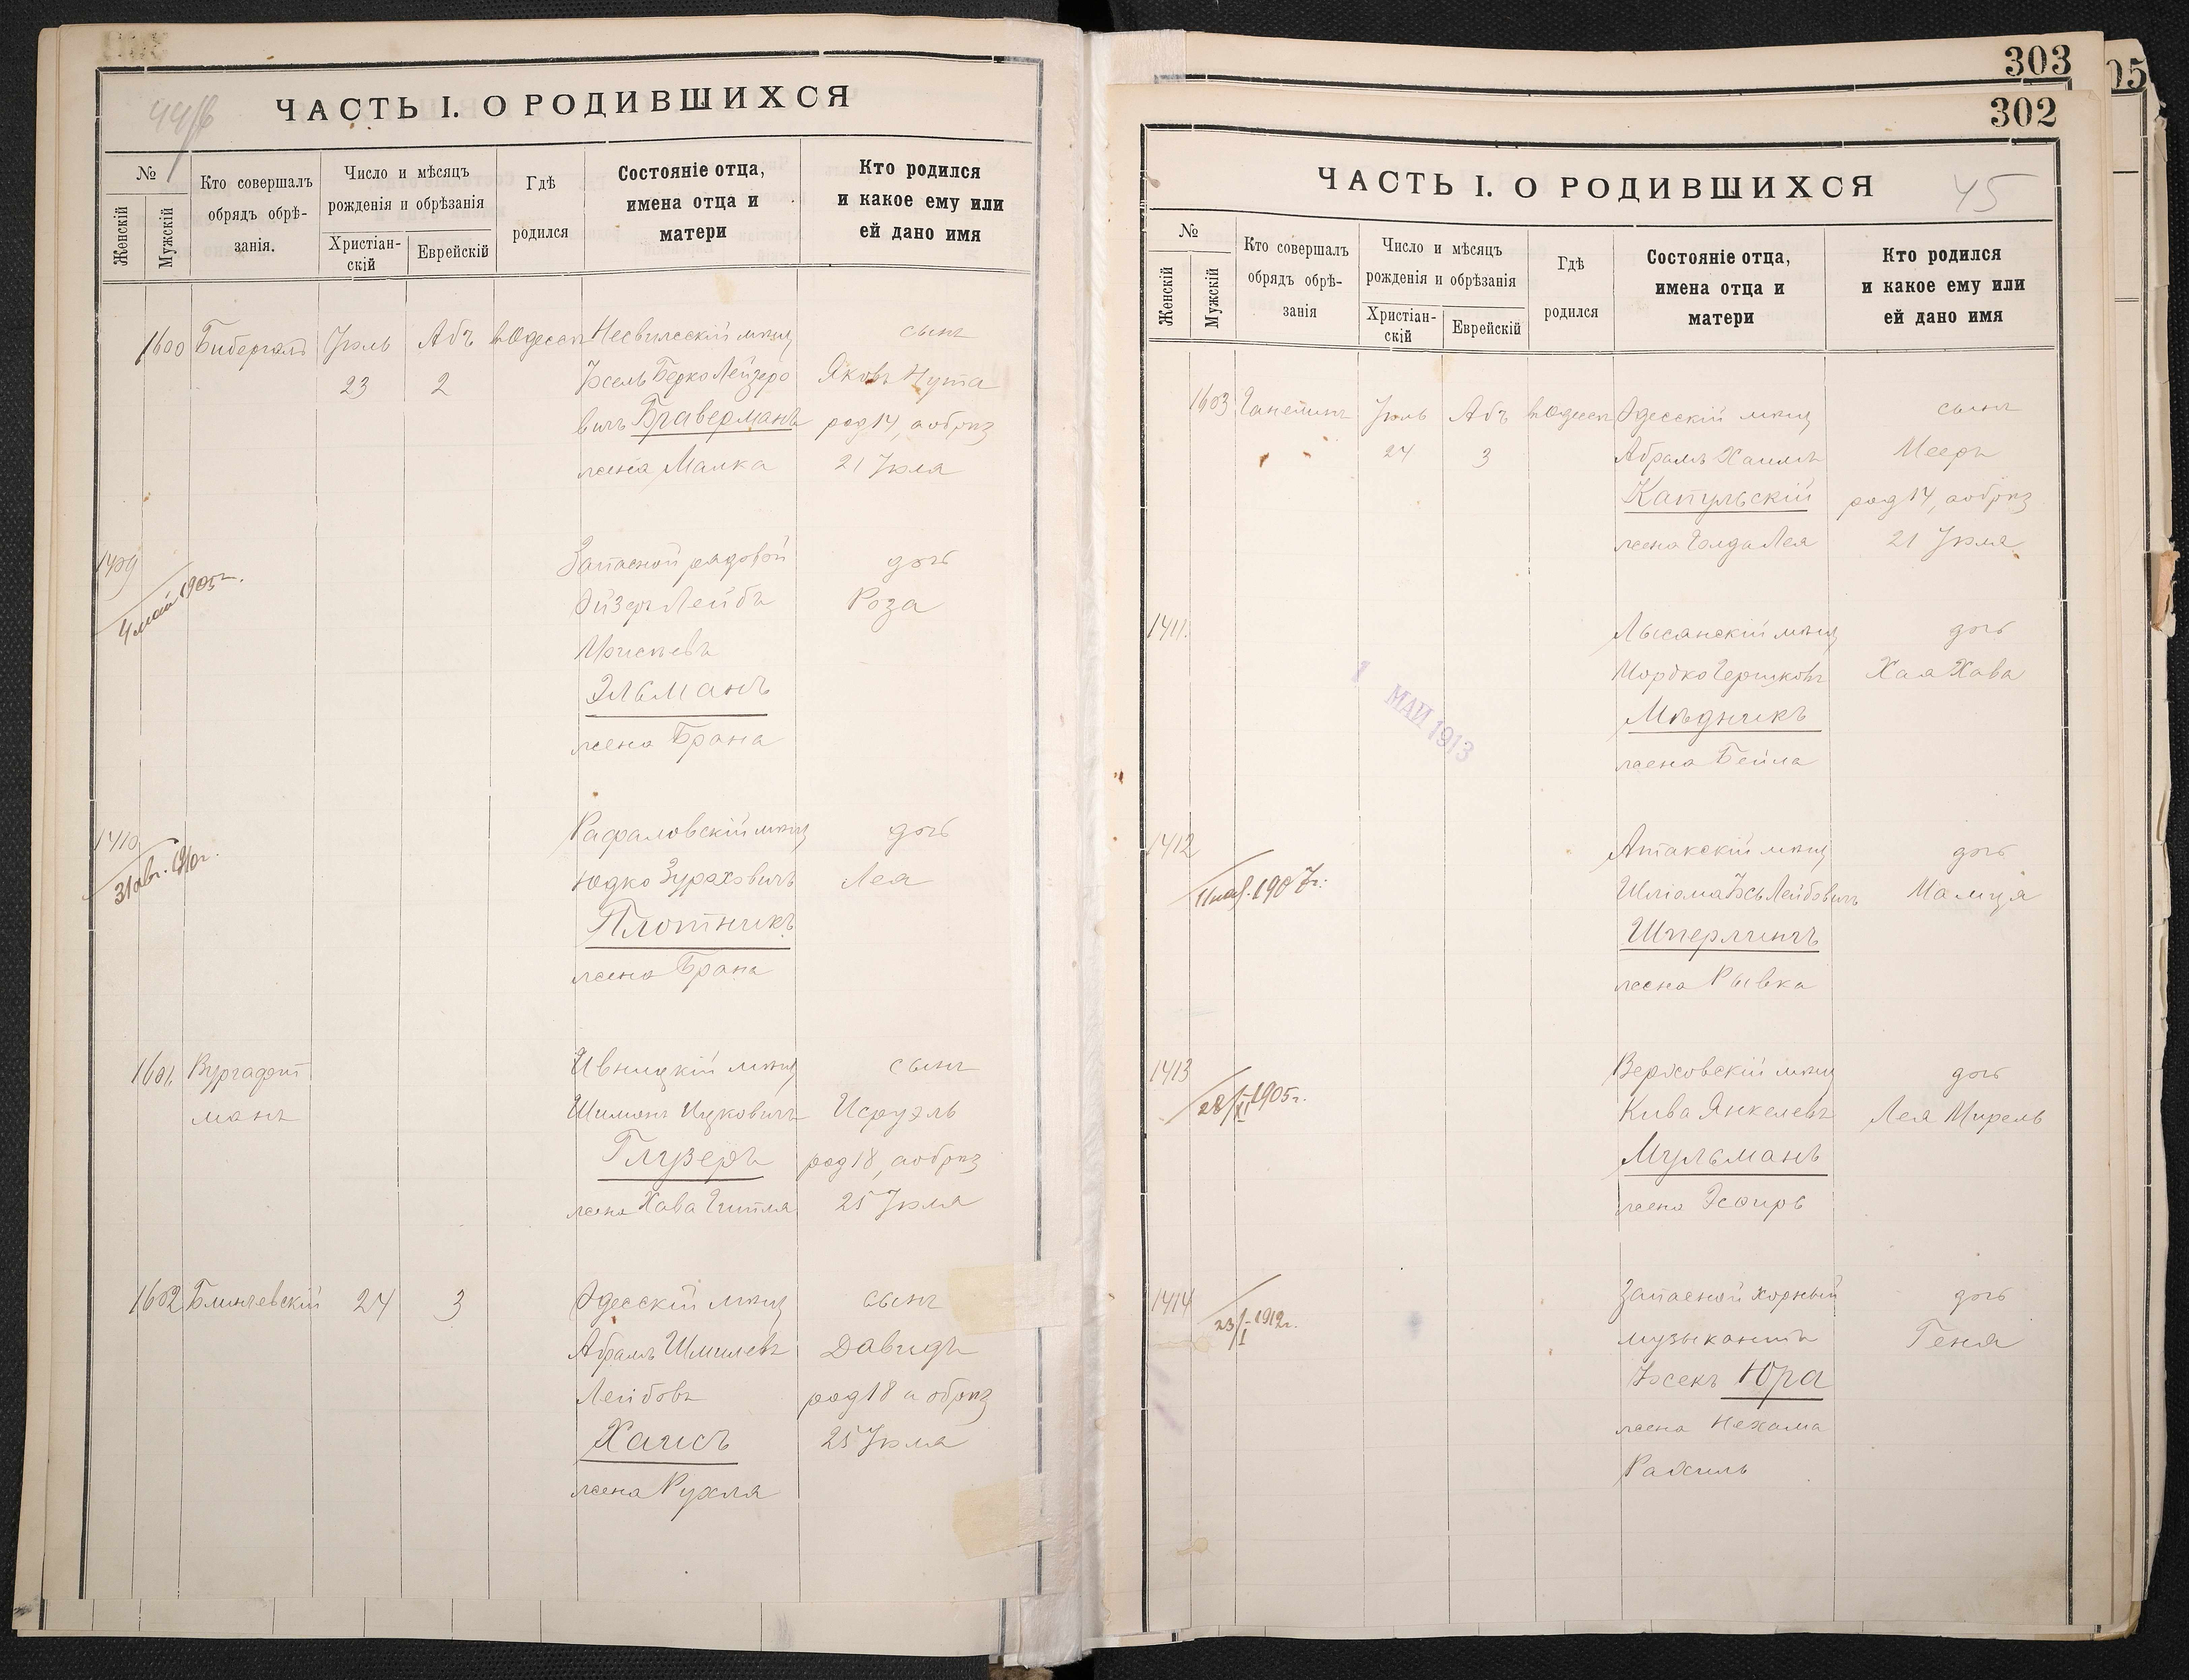 ЧАСТЬ I. О РОДИВШИХСЯ
№
Женскій
Мужскій
Кто совершалъ
обрядъ обрѣ-
занія.
Число и мѣсяцъ
рожденія и обрѣзанія
Христіан-
скій
Еврейскій
Гдѣ
родился
Состояніе отца,
имена отца и
матери
Кто родился
и какое ему или
ей дано имя
1600 Бибергалъ Іюль 23 Абъ 2 въ Одессѣ
Несвижскій мѣщ
Іосель Берко Лейзеро
вичъ Браверманъ
жена Малка
сынъ
Яковъ Нута
род 14, а обрѣз
21 Іюля
1409
4 май 1905 г.
Запасной рядовой
Эйзеръ Лейбъ
Моисеевъ
Эльманъ
жена Брана
дочь
Роза
1410
31 авг. 1910 г.
Рафаловскій мѣщ
Юдко Зураховичъ
Плотникъ
жена Брана
дочь
Лея
1601.
манъ
Ивницкій мѣщ
Шимонъ Ицковичъ
Глузеръ
жена Хава Гитля
сынъ
Исруэль
род 18, а обрѣз
25 Іюля
1602 Блинчевскій 24 3
Одесскій мѣщ
Абрамъ Шмилевъ
Лейбовъ
Хаисъ
жена Рухля
сынъ
Давидъ
род 18 а обрѣз
25 Іюля
303
302
ЧАСТЬ I. О РОДИВШИХСЯ
45
№
Женскій
Мужскій
Кто совершалъ
обрядъ обрѣ-
занія
Число и мѣсяцъ
рожденія и обрѣзанія
Христіан-
скій
Еврейскій
Гдѣ
родился
Состояніе отца,
имена отца и
матери
Кто родился
и какое ему или
ей дано имя
1603 Іюль 24 Абъ 3 въ Одессѣ
Одесскій мѣщ
Абрамъ Хаимъ
Капульскій
жена Голда Лея
сынъ
Мееръ
род 14, а обрѣз
21 Іюля
1411.
МАЙ 1913
Лысянскій мѣщ
Мордко Гершковъ
Мѣдникъ
жена Бейла
дочь
Хая Хава
1412
1907 г.
Атакскій мѣщ
Шлiома Іось Лейбовичъ
Шперлингъ
жена Рывка
дочь
Малця
1413
28/XI 1905 г.
Верховскій мѣщ
Кива Янкелевъ
Мульманъ
жена Эсфирь
дочь
Лея Мирель
1414
23/I 1912 г.
Запасной хорный
музыкантъ
Іосекъ Юра
жена Нехама
Рахиль
дочь
Геня